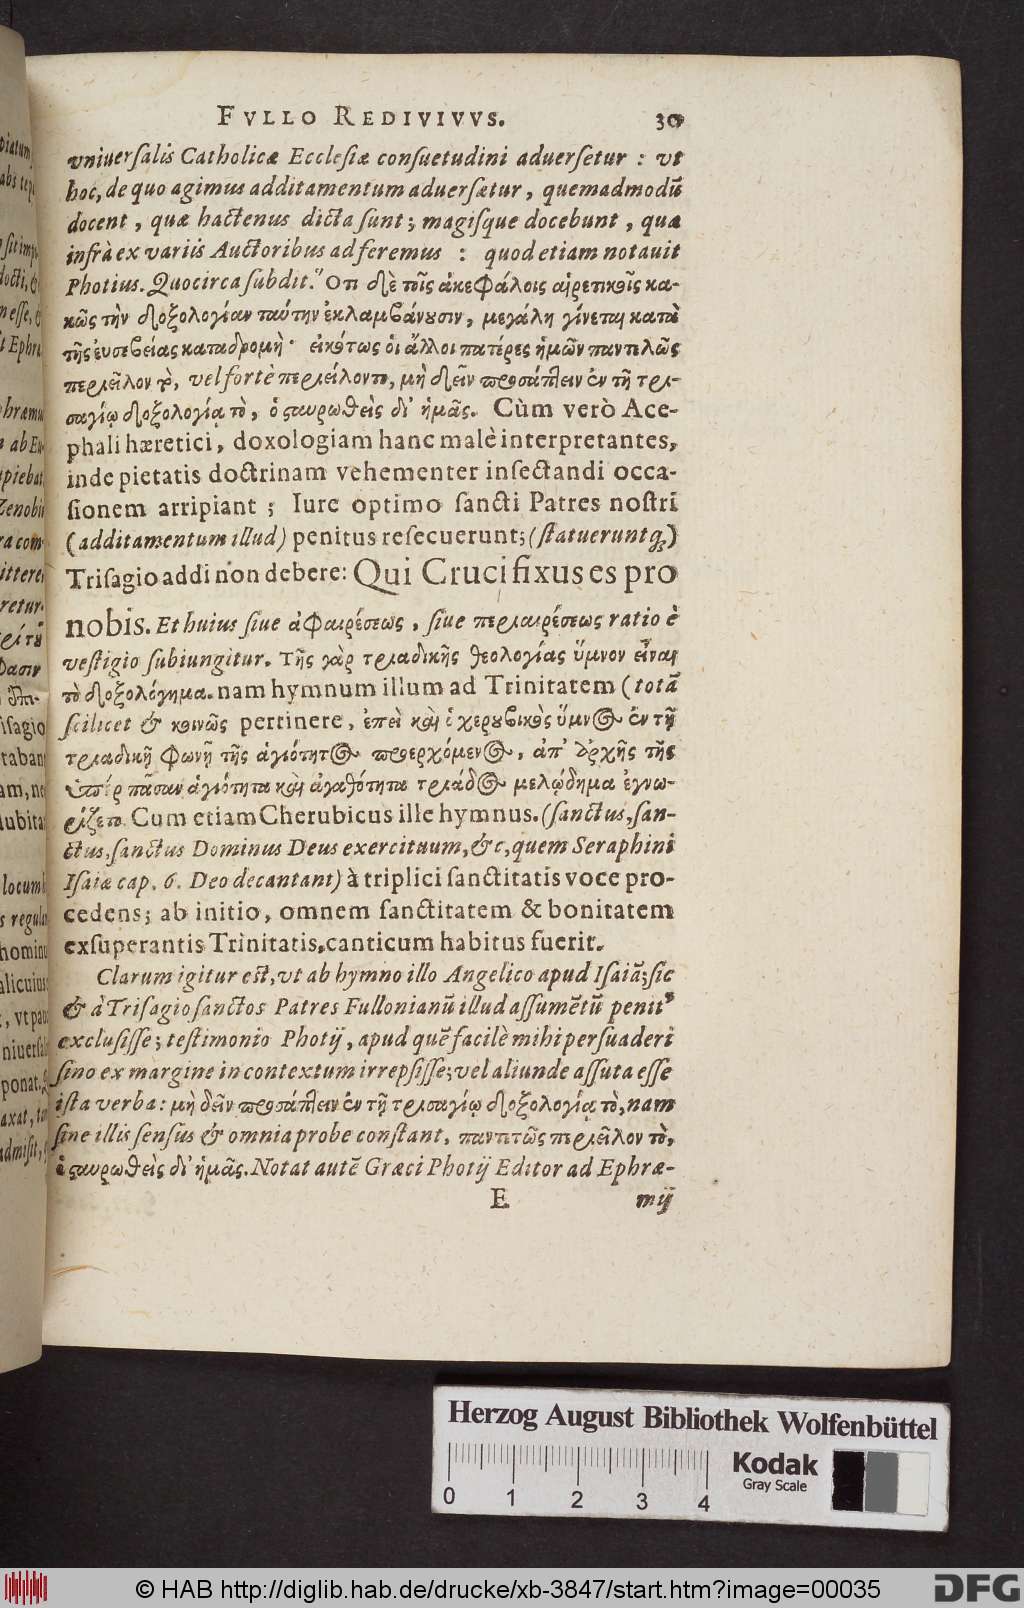 FVLLO REDIVIVVS. 30
vniuersalis Catholicæ Ecclesiæ consuetudini aduersetur : vt
hoc, de quo agimus additamentum aduersætur, quemadmodū
docent, quæ hactenus dicta sunt; magisque docebunt, quæ
infrà ex variis Auctoribus adferemus : quod etiam notauit
Photius. Quocirca subdit." Οτι δὲ τοῖς ἀκεφάλοις αἱρετικοῖς κα-
κῶς τὴν δοξολογίαν ταύτην ἐκλαμβάνουσιν, μεγάλη γίνεται κατὰ
τῆς ἐυσεβείας καταδρομὴ· εἰκότως ὁι ἄλλοι πατέρες ἡμῶν παντελῶς
περιεῖλον τὸ, vel fortè περιείλοντο, μὴ δεῖν προσάπτειν ἐν τῇ τρι-
σαγίῳ δοξολογίᾳ τὸ, ὁ σταυρωθεὶς δι' ἡμᾶς. Cùm verò Ace-
phali hæretici, doxologiam hanc malè interpretantes,
inde pietatis doctrinam vehementer insectandi occa-
sionem arripiant ; Iure optimo sancti Patres nostri
(additamentum illud) penitus resecuerunt; (statueruntq;)
Trisagio addi non debere: Qui Crucifixus es pro
nobis. Et huius siue ἀφαιρέσεως, siue περιαιρέσεως ratio è
vestigio subiungitur. Τῆς γὰρ τριαδικῆς θεολογίας ὕμνον εἶναι
τὸ δοξολόγημα. nam hymnum illum ad Trinitatem (totā
scilicet & κοινῶς pertinere, ἐπεὶ καὶ ὁ χερουβικὸς ὕμνος ἐν τῇ
τριαδικῇ φωνῇ τῆς ἁγιότητος προερχόμενος, ἀπ' ἀρχῆς τῆς
ὑπὲρ πᾶσαν ἁγιότητα καὶ ἀγαθότητα τριάδος μελῴδημα ἐγνω-
ρίζετο. Cum etiam Cherubicus ille hymnus. (sanctus, san-
ctus, sanctus Dominus Deus exercituum, &c, quem Seraphini
Isaiæ cap. 6. Deo decantant) à triplici sanctitatis voce pro-
cedens; ab initio, omnem sanctitatem & bonitatem
exsuperantis Trinitatis, canticum habitus fuerit.
Clarum igitur est, vt ab hymno illo Angelico apud Isaiā; sic
& à Trisagio sanctos Patres Fullonianū illud assumētū penit⁹
exclusisse; testimonio Photij, apud quē facilè mihi persuaderi
sino ex margine in contextum irrepsisse; vel aliunde assuta esse
ista verba: μὴ δεῖν προσάπτειν ἐν τῇ τρισαγίῳ δοξολογίᾳ τὸ, nam
sine illis sensus & omnia probe constant, παντιτῶς περιεῖλον τὸ,
ὁ σταυρωθεὶς δι' ἡμᾶς. Notat autē Græci Photij Editor ad Ephræ-
E mij
Herzog August Bibliothek Wolfenbüttel
0 1 2 3 4
Kodak
Gray Scale
© HAB http://diglib.hab.de/drucke/xb-3847/start.htm?image=00035
DFG